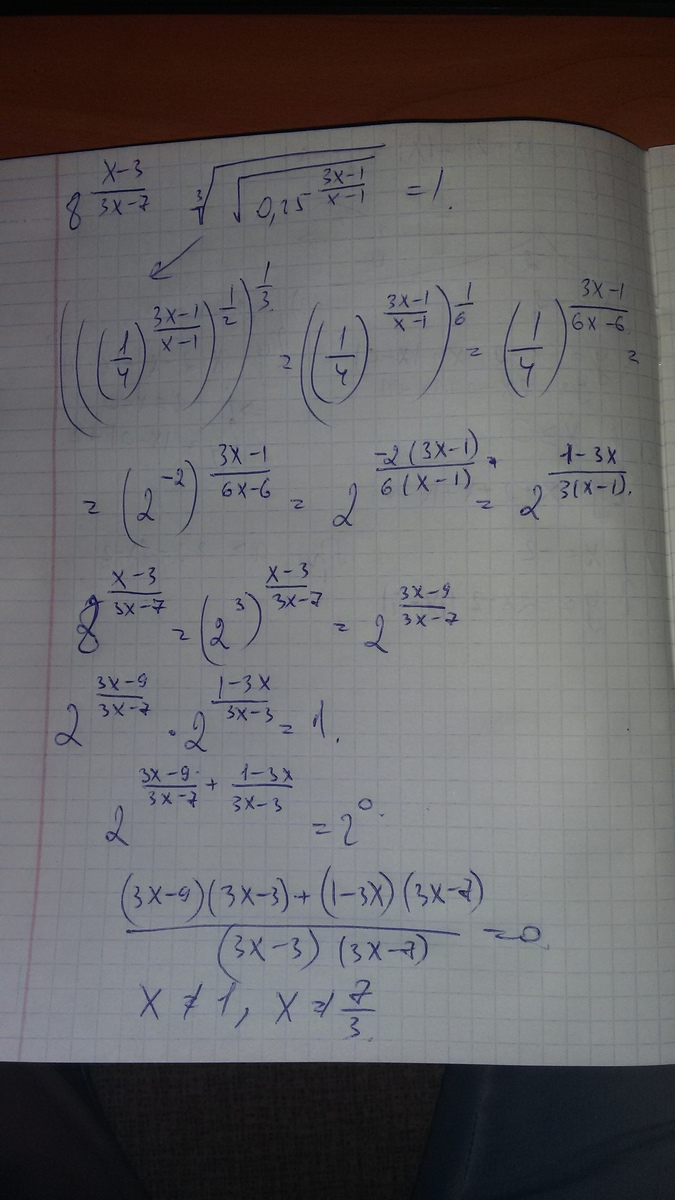 8^((x-3)/(3x-7)) ∛(√(0,25^((3x-1)/(x-1)))) = 1.
(((1/4)^((3x-1)/(x-1)))^(1/2))^(1/3) = ((1/4)^((3x-1)/(x-1)))^(1/6) = (1/4)^((3x-1)/(6x-6)) =
= (2^(-2))^((3x-1)/(6x-6)) = 2^((-2(3x-1))/(6(x-1))) = 2^((1-3x)/(3(x-1))).
8^((x-3)/(3x-7)) = (2^3)^((x-3)/(3x-7)) = 2^((3x-9)/(3x-7))
2^((3x-9)/(3x-7)) · 2^((1-3x)/(3x-3)) = 1.
2^((3x-9)/(3x-7) + (1-3x)/(3x-3)) = 2^0.
((3x-9)(3x-3)+(1-3x)(3x-7))/((3x-3)(3x-7)) = 0
x ≠ 1, x ≠ 7/3.